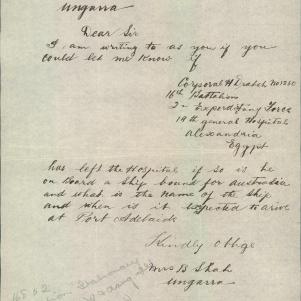 Ungarra
Dear Sir
I am writing to as you if you
could let me Know if
Corporal H No 1260
16th Battalion
2 Expord Force
19th general Hospital
Alexandria
Egypt
has left the Hospital if so is he
on Board a Ship bound for Australia
and what is the name of the Ship
and when is it Expected to arive
at Port Adelaide
Kindly Oblige
Mrs B Shah
Ungarra